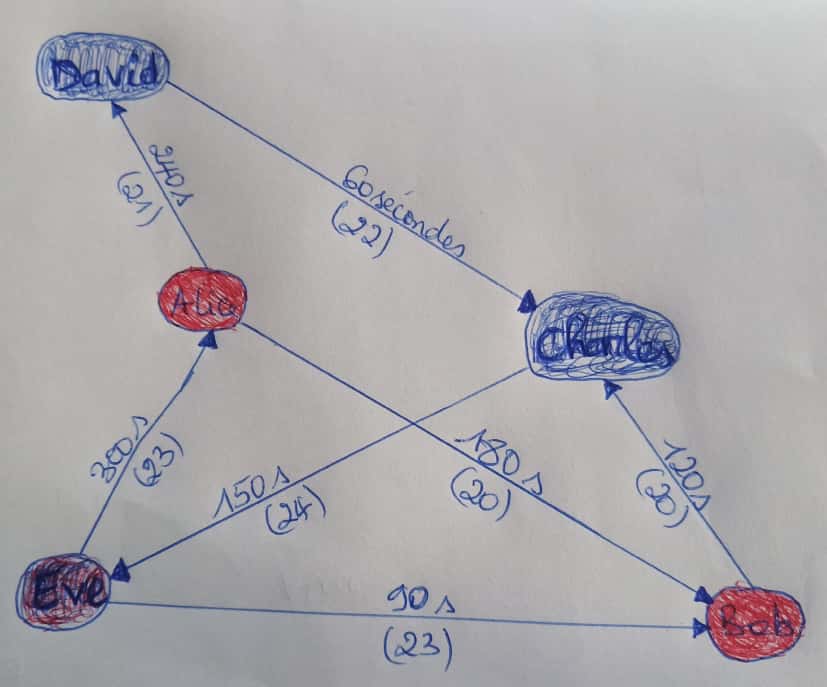 David
240s
(21)
60 secondes
(22)
Alice
Charles
300s
(23)
150s
(24)
180s
(20)
120s
(20)
Eve
90s
(23)
Bob